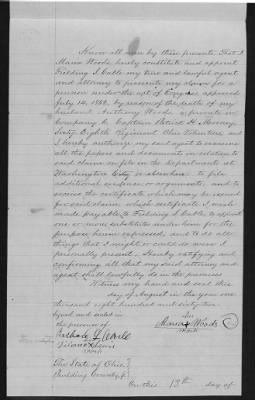 Know all men by these presents That I
Maria Woods hereby constitute and appoint
Fielding S Cable my true and lawful agent
and attorney to prosecute my claim for a
pension under the act of Congress approved
July 14, 1862, by reason of the death of my
husband Anthony Woods a private in
Company C Captain Patrick H. Mooney
Sixty Eighth Regiment Ohio Volunteers and
I hereby authorize my said agent to examine
all the papers and documents in relation to
said claim on file in the Departments at
Washington City or elsewhere to file
additional evidence or arguments, and to
receive the certificate which may be issued
for said claim which certificate I wish
made payable to Fielding S Cable to appoint
one or more substitutes under him for the
purpose herein expressed, and to do all
things that I might or could do were I
personally present. Hereby ratifying and
confirming all that my said attorney and
agent shall lawfully do in the premises
Witness my hand and seal this
day of August in the year one
thousand eight hundred and sixty two
Signed and sealed in
the presence of
her
Maria X Woods
mark
The State of Ohio
Paulding County
On this 13th day of